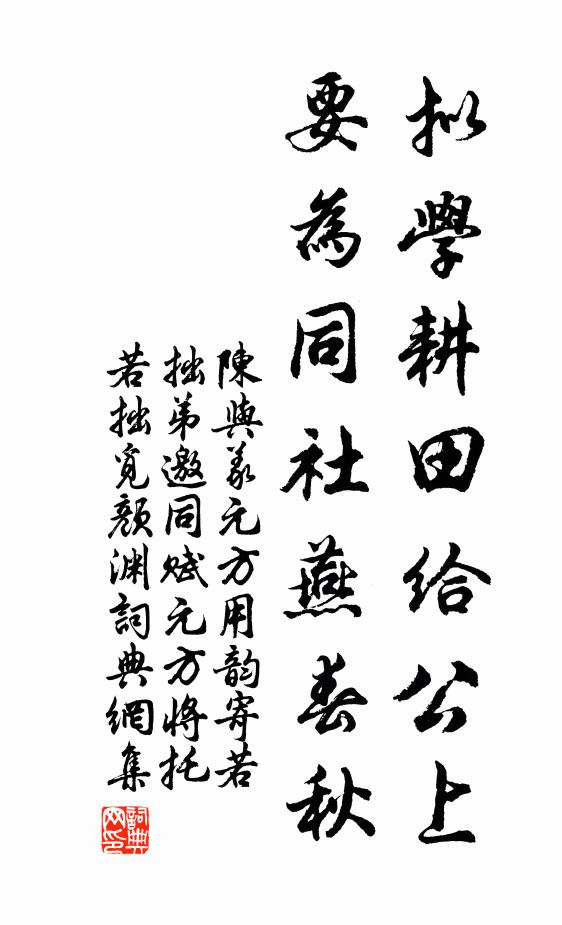 拟學耕田給公上
要為同社燕春秋
陳與義元方用韵寄若
拙弟邀同赋元方將托
若拙覓顏渊詞典網集
詞典网印